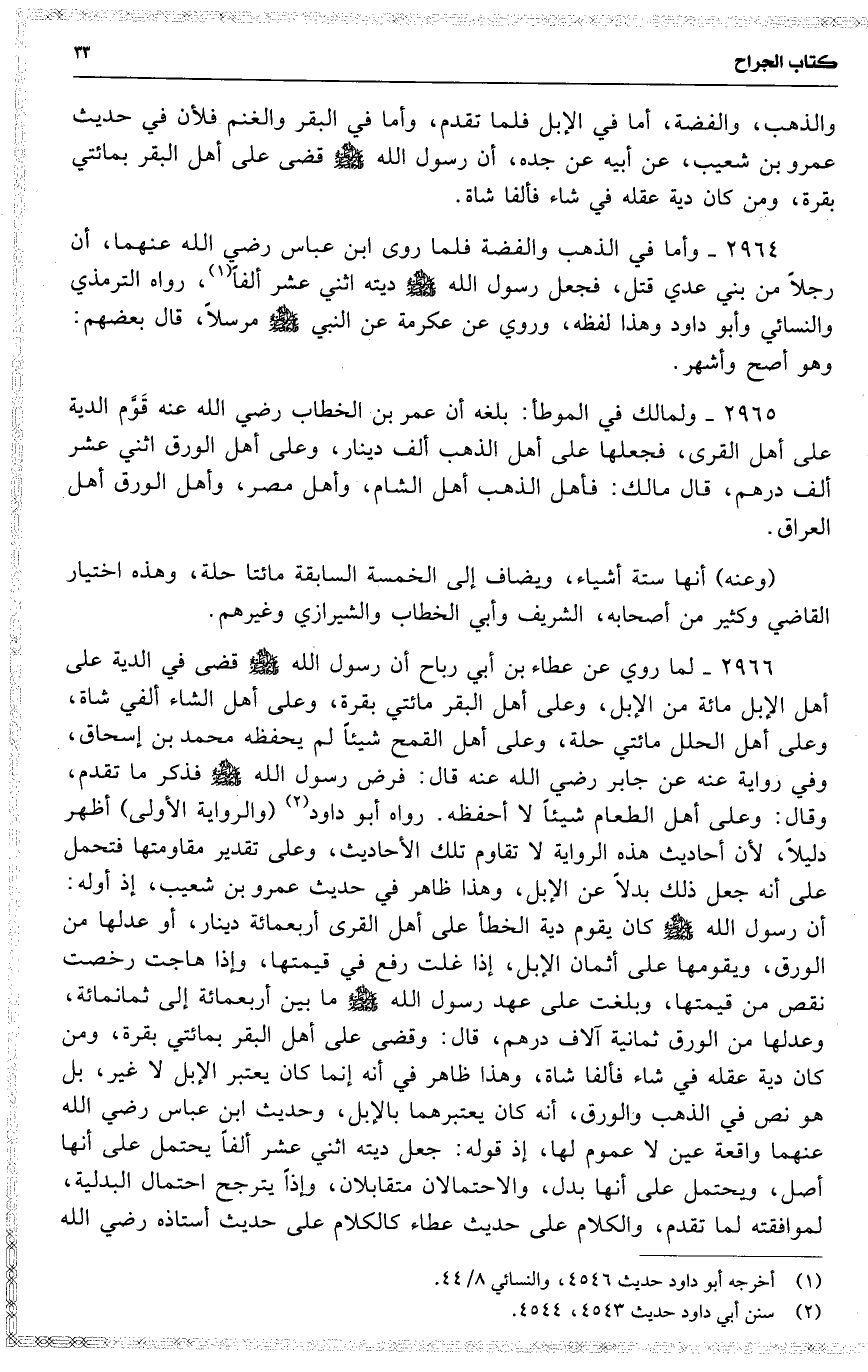 كتاب الجراح ٣٣
والذهب، والفضة، أما في الإبل فلما تقدم، وأما في البقر والغنم فلأن في حديث
عمرو بن شعيب، عن أبيه عن جده، أن رسول الله ﷺ قضى على أهل البقر بمائتي
بقرة، ومن كان دية عقله في شاء فألفا شاة.
٢٩٦٤ ـ وأما في الذهب والفضة فلما روى ابن عباس رضي الله عنهما، أن
رجلاً من بني عدي قتل، فجعل رسول الله ﷺ ديته اثني عشر ألفاً(١)، رواه الترمذي
والنسائي وأبو داود وهذا لفظه، وروي عن عكرمة عن النبي ﷺ مرسلاً، قال بعضهم:
وهو أصح وأشهر.
٢٩٦٥ ـ ولمالك في الموطأ: بلغه أن عمر بن الخطاب رضي الله عنه قَوَّم الدية
على أهل القرى، فجعلها على أهل الذهب ألف دينار، وعلى أهل الورق اثني عشر
ألف درهم، قال مالك: فأهل الذهب أهل الشام، وأهل مصر، وأهل الورق أهل
العراق.
(وعنه) أنها ستة أشياء، ويضاف إلى الخمسة السابقة مائتا حلة، وهذه اختيار
القاضي وكثير من أصحابه، الشريف وأبي الخطاب والشيرازي وغيرهم.
٢٩٦٦ ـ لما روي عن عطاء بن أبي رباح أن رسول الله ﷺ قضى في الدية على
أهل الإبل مائة من الإبل، وعلى أهل البقر مائتي بقرة، وعلى أهل الشاء ألفي شاة،
وعلى أهل الحلل مائتي حلة، وعلى أهل القمح شيئاً لم يحفظه محمد بن إسحاق،
وفي رواية عنه عن جابر رضي الله عنه قال: فرض رسول الله ﷺ فذكر ما تقدم،
وقال: وعلى أهل الطعام شيئاً لا أحفظه. رواه أبو داود(٢) (والرواية الأولى) أظهر
دليلاً، لأن أحاديث هذه الرواية لا تقاوم تلك الأحاديث، وعلى تقدير مقاومتها فتحمل
على أنه جعل ذلك بدلاً عن الإبل، وهذا ظاهر في حديث عمرو بن شعيب، إذ أوله:
أن رسول الله ﷺ كان يقوم دية الخطأ على أهل القرى أربعمائة دينار، أو عدلها من
الورق، ويقومها على أثمان الإبل، إذا غلت رفع في قيمتها، وإذا هاجت رخصت
نقص من قيمتها، وبلغت على عهد رسول الله ﷺ ما بين أربعمائة إلى ثمانمائة،
وعدلها من الورق ثمانية آلاف درهم، قال: وقضى على أهل البقر بمائتي بقرة، ومن
كان دية عقله في شاء فألفا شاة، وهذا ظاهر في أنه إنما كان يعتبر الإبل لا غير، بل
هو نص في الذهب والورق، أنه كان يعتبرهما بالإبل، وحديث ابن عباس رضي الله
عنهما واقعة عين لا عموم لها، إذ قوله: جعل ديته اثني عشر ألفاً يحتمل على أنها
أصل، ويحتمل على أنها بدل، والاحتمالان متقابلان، وإذاً يترجح احتمال البدلية،
لموافقته لما تقدم، والكلام على حديث عطاء كالكلام على حديث أستاذه رضي الله
(١) أخرجه أبو داود حديث ٤٥٤٦، والنسائي ٨/ ٤٤.
(٢) سنن أبي داود حديث ٤٥٤٣، ٤٥٤٤.